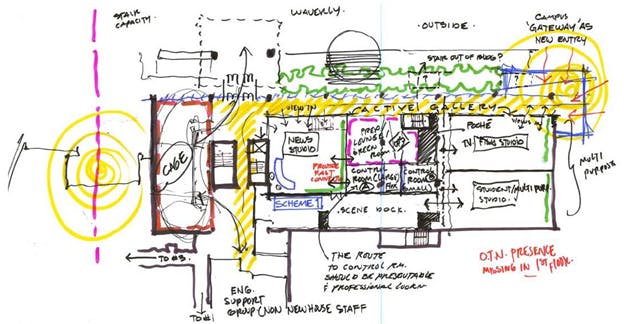 STAIR
CAPACITY.
WAVERLY.
OUTSIDE.
CAMPUS
'GATEWAY' AS
NEW ENTRY
STAIR OUT OF BLDG?
VIEW IN
ACTIVE GALLERY
VIEWS
CAGE
NEWS
STUDIO
PREP
LOUNGE
GREEN
ROOM
POCHÉ
TV/FILM STUDIO
MULTI
PURPOSE
CONTROL
ROOM (LARGE)
CONTROL
ROOM
SMALL)
SCHEME 1
SCENE DOCK.
STUDENT/MULTI PURP.
STUDIO.
THE ROUTE
TO CONTROL RM.
SHOULD BE PRESENTABLE
& PROFESSIONAL LOOKING
O.T.N. PRESENCE
MISSING IN 1ST FLOOR.
TO #3.
TO #1
ENG.
SUPPORT
GROUP (NON NEWHOUSE STAFF